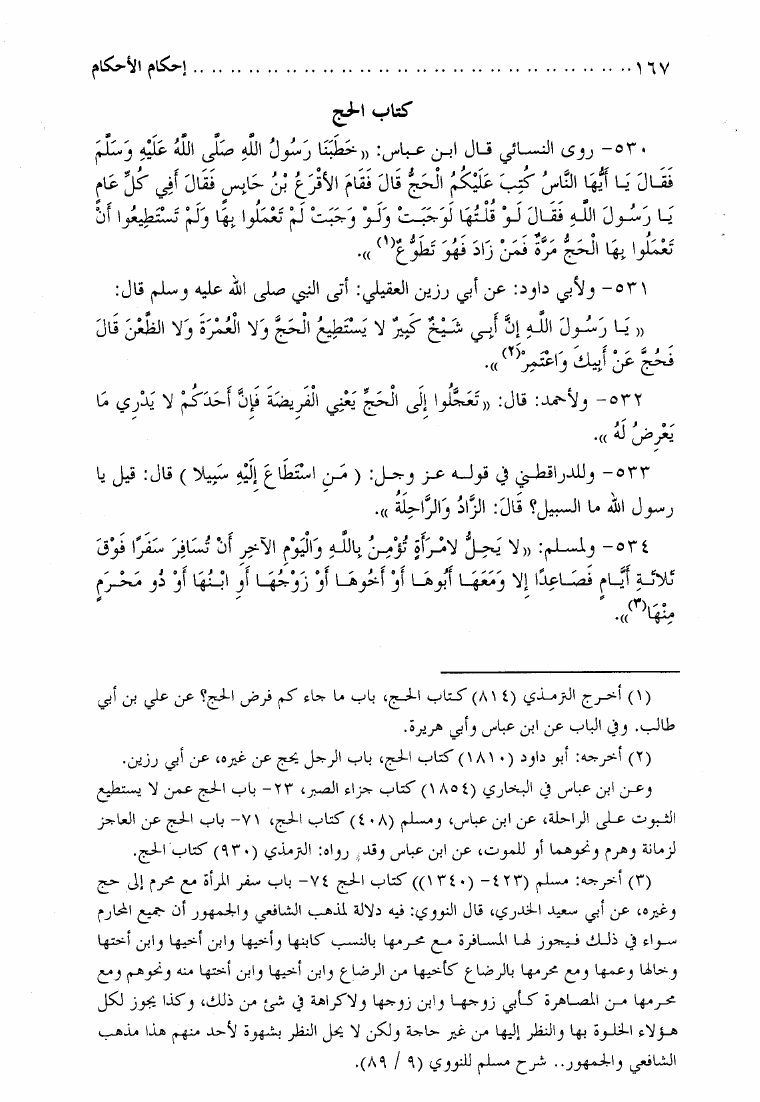 ١٦٧ .................................................. إحكام الأحكام
كتاب الحج
٥٣٠- روى النسائي قال ابن عباس: «خَطَبَنَا رَسُولُ اللَّهِ صَلَّى اللَّهُ عَلَيْهِ وَسَلَّمَ
فَقَالَ يَا أَيُّهَا النَّاسُ كُتِبَ عَلَيْكُمُ الْحَجُّ قَالَ فَقَامَ الأَقْرَعُ بْنُ حَابِسٍ فَقَالَ أَفِي كُلِّ عَامٍ
يَا رَسُولَ اللَّهِ فَقَالَ لَوْ قُلْتُهَا لَوَجَبَتْ وَلَوْ وَجَبَتْ لَمْ تَعْمَلُوا بِهَا وَلَمْ تَسْتَطِيعُوا أَنْ
تَعْمَلُوا بِهَا الْحَجُّ مَرَّةٌ فَمَنْ زَادَ فَهُوَ تَطَوُّعٌ(١)».
٥٣١- ولأبي داود: عن أبي رزين العقيلي: أتى النبي صلى الله عليه وسلم قال:
« يَا رَسُولَ اللَّهِ إِنَّ أَبِي شَيْخٌ كَبِيرٌ لا يَسْتَطِيعُ الْحَجَّ وَلا الْعُمْرَةَ وَلا الظَّعْنَ قَالَ
فَحُجَّ عَنْ أَبِيكَ وَاعْتَمِرْ(٢)».
٥٣٢- ولأحمد: قال: «تَعَجَّلُوا إِلَى الْحَجِّ يَعْنِي الْفَرِيضَةَ فَإِنَّ أَحَدَكُمْ لا يَدْرِي مَا
يَعْرِضُ لَهُ ».
٥٣٣- وللدراقطني في قوله عز وجل: ( مَنِ اسْتَطَاعَ إِلَيْهِ سَبِيلا ) قال: قيل يا
رسول الله ما السبيل؟ قَالَ: الزَّادُ وَالرَّاحِلَةُ ».
٥٣٤- ولمسلم: «لا يَحِلُّ لامْرَأَةٍ تُؤْمِنُ بِاللَّهِ وَالْيَوْمِ الآخِرِ أَنْ تُسَافِرَ سَفَرًا فَوْقَ
ثَلاثَةِ أَيَّامٍ فَصَاعِدًا إِلا وَمَعَهَا أَبُوهَا أَوْ أَخُوهَا أَوْ زَوْجُهَا أَوِ ابْنُهَا أَوْ ذُو مَحْرَمٍ
مِنْهَا(٣)».
(١) أخرج الترمذي (٨١٤) كتاب الحج، باب ما جاء كم فرض الحج؟ عن علي بن أبي
طالب. وفي الباب عن ابن عباس وأبي هريرة.
(٢) أخرجه: أبو داود (١٨١٠) كتاب الحج، باب الرجل يحج عن غيره، عن أبي رزين.
وعن ابن عباس في البخاري (١٨٥٤) كتاب جزاء الصبر، ٢٣- باب الحج عمن لا يستطيع
الثبوت على الراحلة، عن ابن عباس، ومسلم (٤٠٨) كتاب الحج، ٧١- باب الحج عن العاجز
لزمانة وهرم ونحوهما أو للموت، عن ابن عباس وقد رواه: الترمذي (٩٣٠) كتاب الحج.
(٣) أخرجه: مسلم (٤٢٣- (١٣٤٠)) كتاب الحج ٧٤- باب سفر المرأة مع محرم إلى حج
وغيره، عن أبي سعيد الخدري، قال النووي: فيه دلالة لمذهب الشافعي والجمهور أن جميع المحارم
سواء في ذلك فيجوز لها المسافرة مع محرمها بالنسب كابنها وأخيها وابن أخيها وابن أختها
وخالها وعمها ومع محرمها بالرضاع كأخيها من الرضاع وابن أخيها وابن أختها منه ونحوهم ومع
محرمها من المصاهرة كأبي زوجها وابن زوجها ولاكراهة في شئ من ذلك، وكذا يجوز لكل
هؤلاء الخلوة بها والنظر إليها من غير حاجة ولكن لا يحل النظر بشهوة لأحد منهم هذا مذهب
الشافعي والجمهور.. شرح مسلم للنووي (٩ / ٨٩).